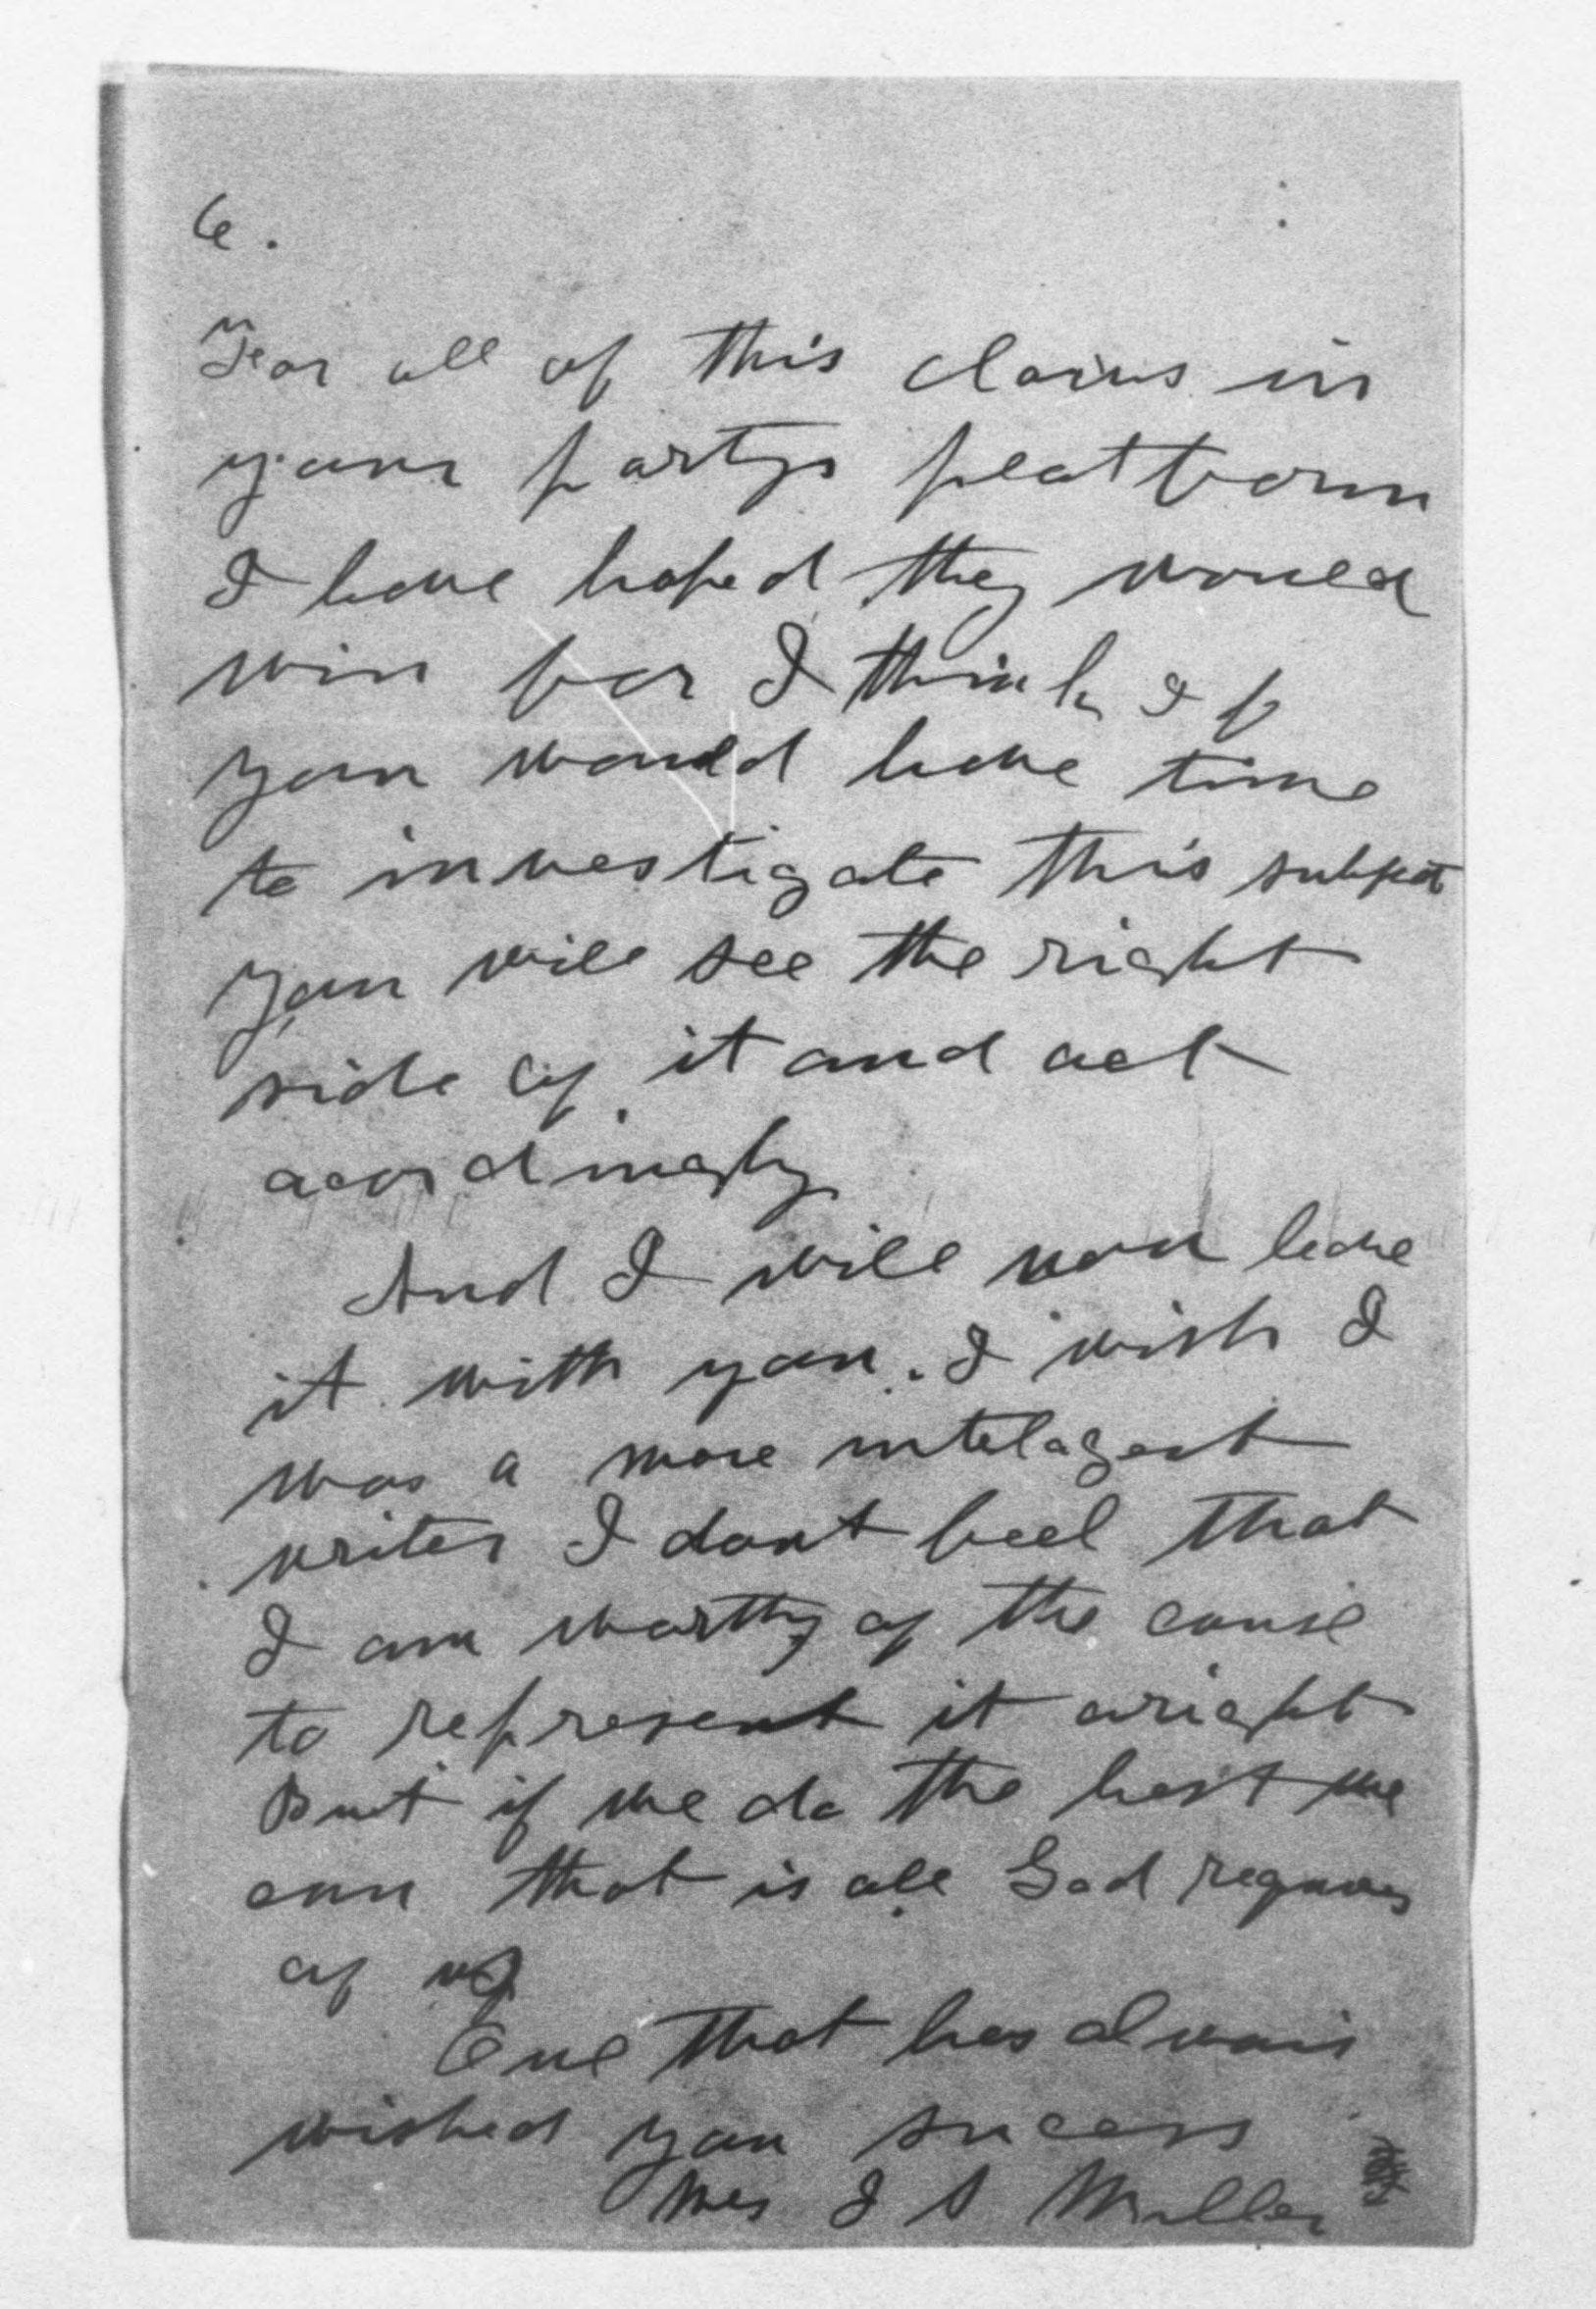 6.
For all of this claims in
your partys platform
I have hoped they would
win for I think if
you would have time
to investigate this subject
you will see the right
side of it and act
acordingly
And I will now leave
it with you. I wish I
was a more intelagent
writer I dont feel that
I am worthy of the cause
to represent it aright
But if we do the best we
can that is all God requires
of us
One that has alwais
wished you sucess
Mrs J S Miller